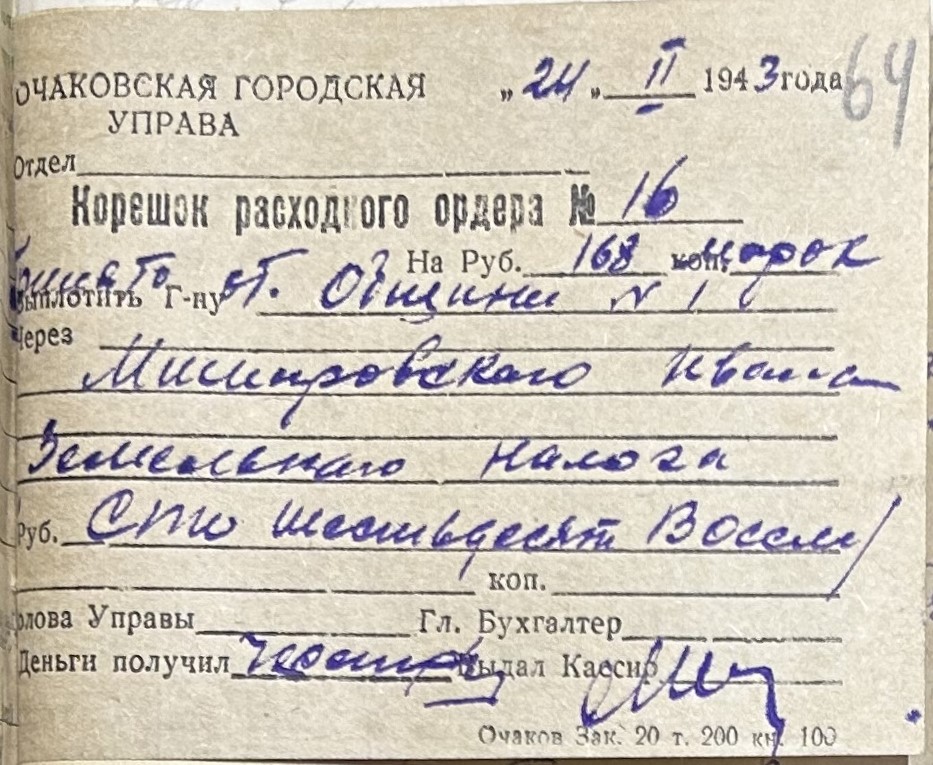 ОЧАКОВСКАЯ ГОРОДСКАЯ „24„ II 1943 года 64
УПРАВА
Отдел
Корешок расходного ордера № 16
На Руб. 168 коп. марок
Принято
Выплотить Г-ну от. Общины N 1
Через
Мишировского Ивана
Земельнаго налога
Руб. Сто шестьдесят Восемь
коп.
олова Управы Гл. Бухгалтер
Деньги получил Выдал Кассир
Очаков Зак. 20 т. 200 кн. 100